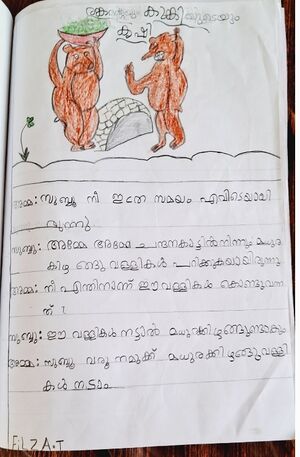 കൃഷി
അമ്മ: സുബ്ബൂ നീ ഇത്ര സമയം എവിടെയായി
രുന്നു
സുബ്ബു: അമ്മേ ചന്ദനകാട്ടിൽനിന്നും മധുര
കിഴങ്ങു വള്ളികൾ പറിക്കുകയായിരുന്നു
അമ്മ: നീ എന്തിനാന്ന് ഈ വള്ളികൾ കൊണ്ടുവന്ന
ത് ?
സുബ്ബു: ഈ വള്ളികൾ നട്ടാൽ മധുരക്കിഴങ്ങുണ്ടാകും
അമ്മ: സുബ്ബൂ വരൂ നമുക്ക് മധുരക്കിഴങ്ങുവള്ളി
കൾ നടാം
FILZA.T